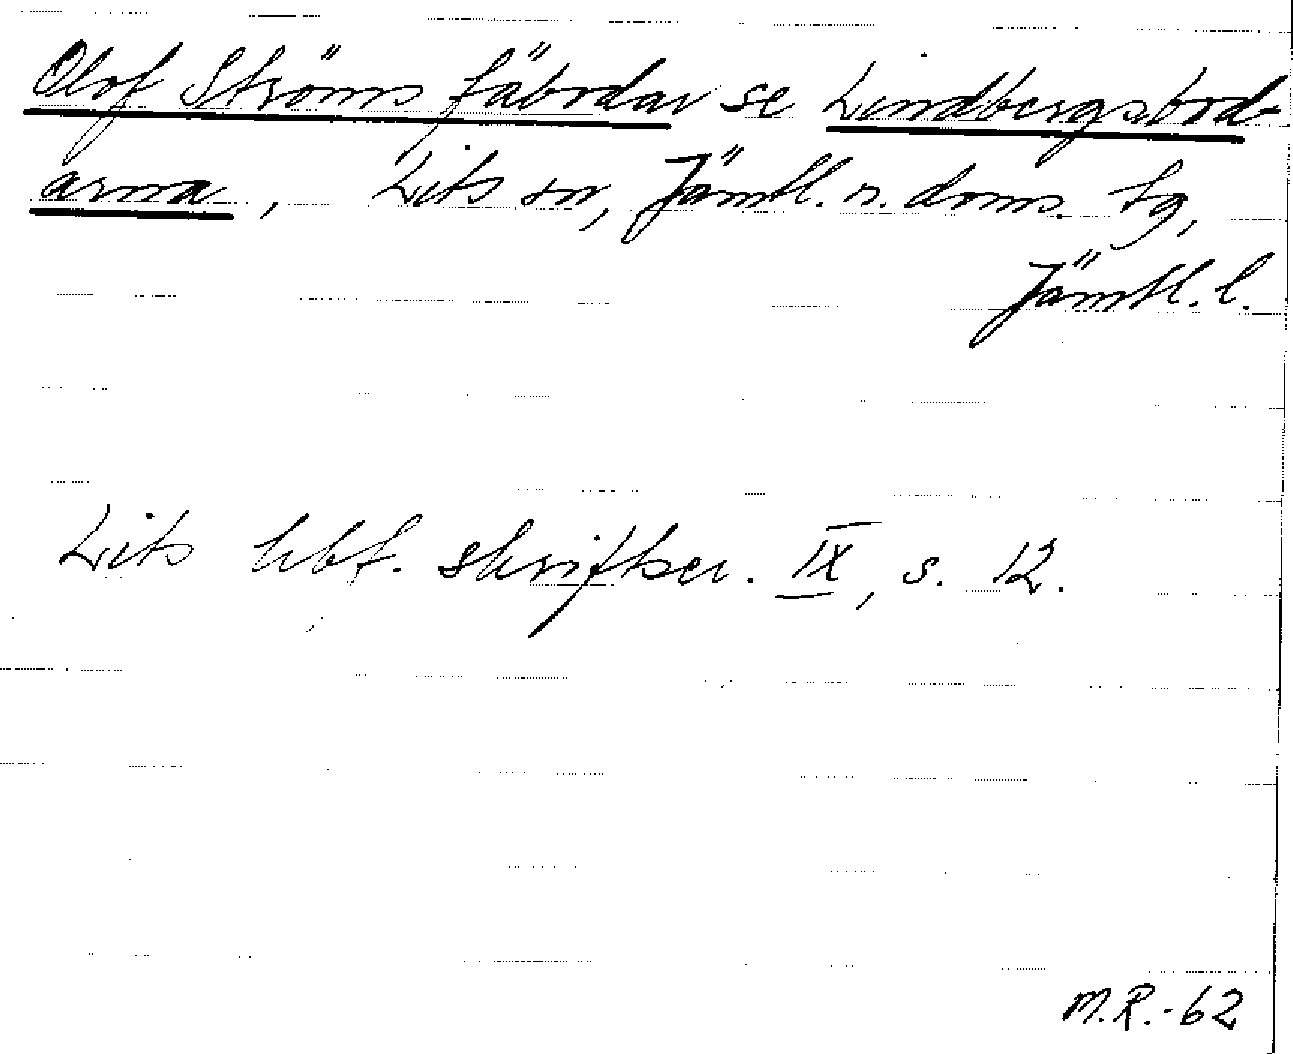 Olof Ströms fäbodar se Lindbergsbod-
arna, Lits sn, Jämtl. n. doms. tg,
Jämtl. l.
Lits hbf. skriftser. IX, s. 12.
M.R.-62